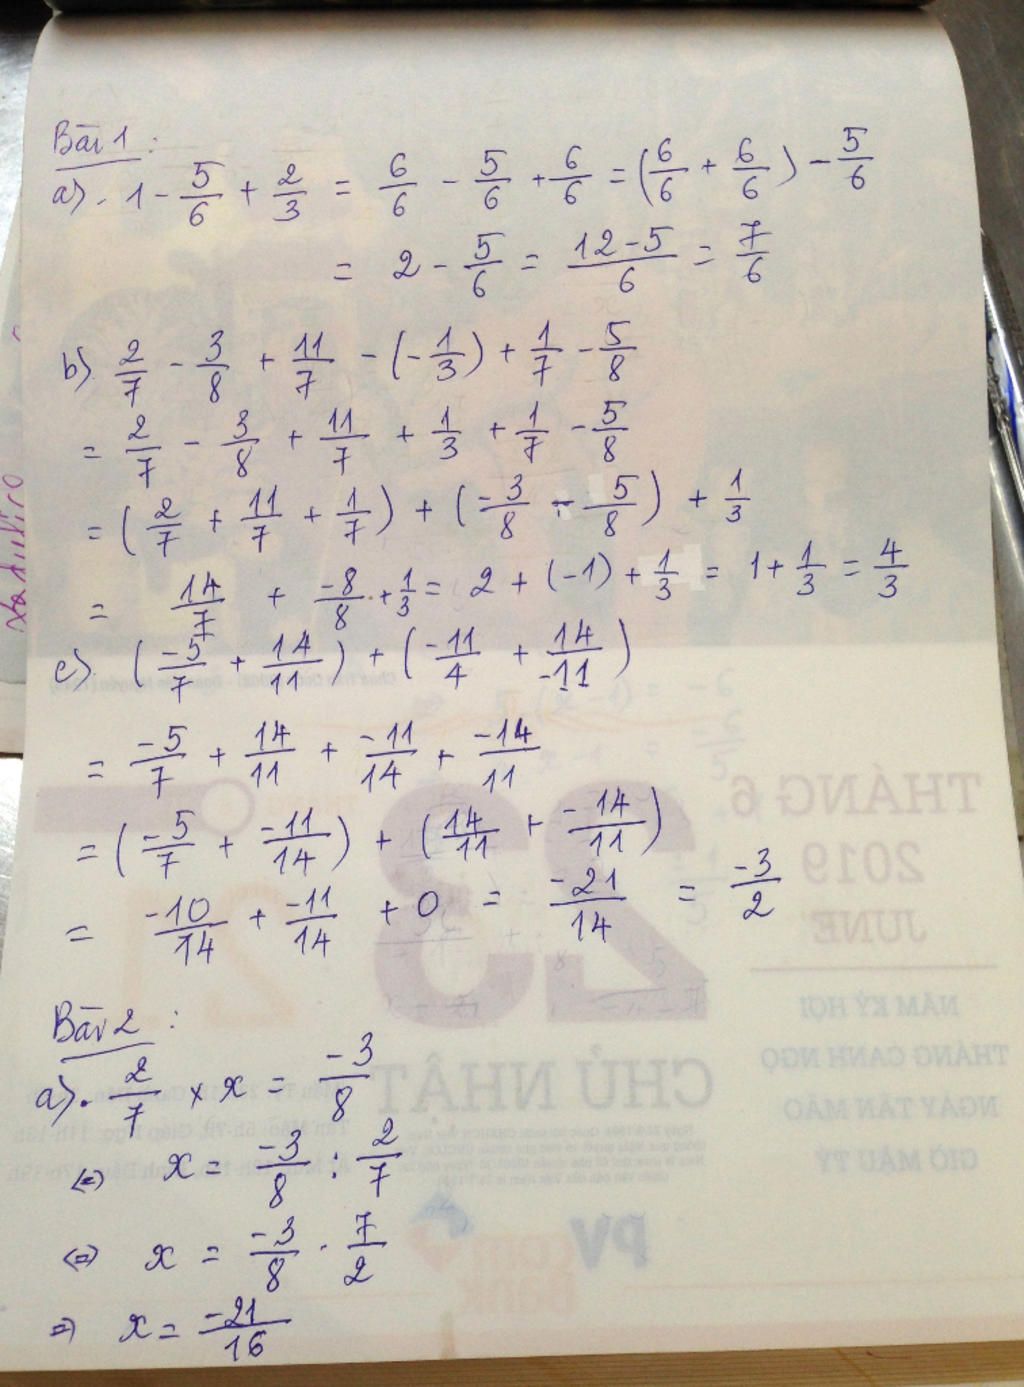 Bài 1 :
a). 1 - 5/6 + 2/3 = 6/6 - 5/6 + 6/6 = (6/6 + 6/6) - 5/6
= 2 - 5/6 = (12-5)/6 = 7/6
b) 2/7 - 3/8 + 11/7 - (-1/3) + 1/7 - 5/8
= 2/7 - 3/8 + 11/7 + 1/3 + 1/7 - 5/8
= (2/7 + 11/7 + 1/7) + (-3/8 - 5/8) + 1/3
= 14/7 + -8/8 + 1/3 = 2 + (-1) + 1/3 = 1 + 1/3 = 4/3
c). (-5/7 + 14/11) + (-11/4 + 14/-11)
= -5/7 + 14/11 + -11/14 + -14/11
= (-5/7 + -11/14) + (14/11 + -14/11)
= -10/14 + -11/14 + 0 = -21/14 = -3/2
Bài 2 :
a). 2/7 × x = -3/8
⇔ x = -3/8 : 2/7
⇔ x = -3/8 . 7/2
⇒ x = -21/16
THÁNG 6
2019
JUNE
23
NĂM KỶ HỢI
THÁNG CANH NGỌ
NGÀY TÂN MÃO
GIỜ MẬU TÝ
CHỦ NHẬT
PV
com
Bank